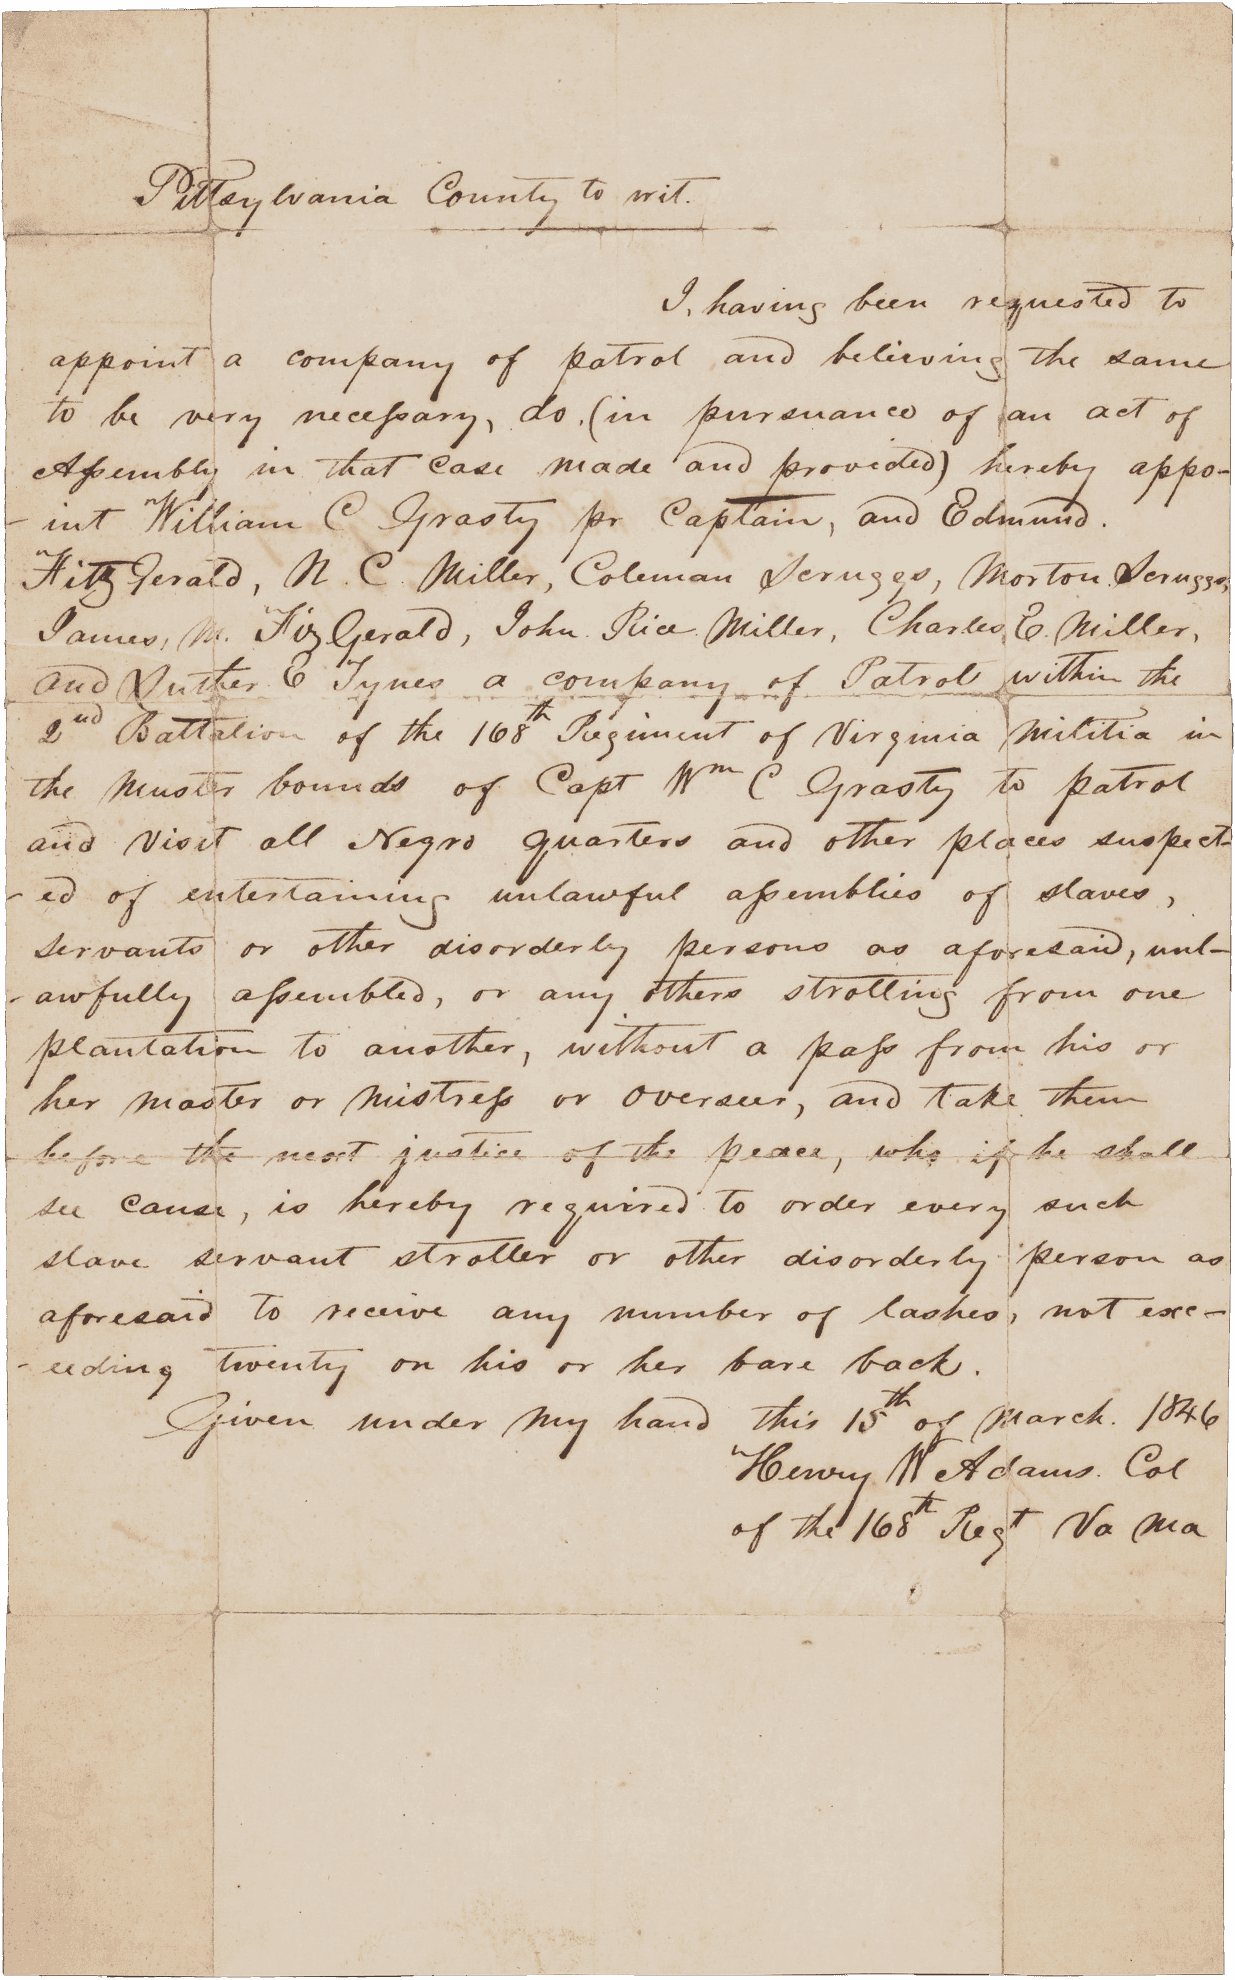 Pittsylvania County to wit.
I, having been requested to
appoint a company of patrol and believing the same
to be very necessary, do, (in pursuance of an act of
Assembly in that case made and provided) hereby appo-
-int William C Grasty pr Captain, and Edmund.
FitzGerald, N. C. Miller, Coleman Scruggs, Morton Scruggs,
James, M. FizGerald, John Rice Miller, Charles E. Miller,
and Luther E Tynes a company of Patrol within the
2nd Battalion of the 168th Regiment of Virginia Militia in
the Muster bounds of Capt Wm C Grasty to patrol
and visit all Negro quarters and other places suspect-
-ed of entertaining unlawful assemblies of slaves,
servants or other disorderly persons as aforesaid, unl-
-awfully assembled, or any others strolling from one
plantation to another, without a pass from his or
her master or mistress or overseer, and take them
before the next justice of the peace, who if he shall
see cause, is hereby required to order every such
slave servant stroller or other disorderly person as
aforesaid to receive any number of lashes, not exc-
-eeding twenty on his or her bare back.
Given under my hand this 15th of March. 1846
Henry W Adams. Col
of the 168th Regt Va Ma